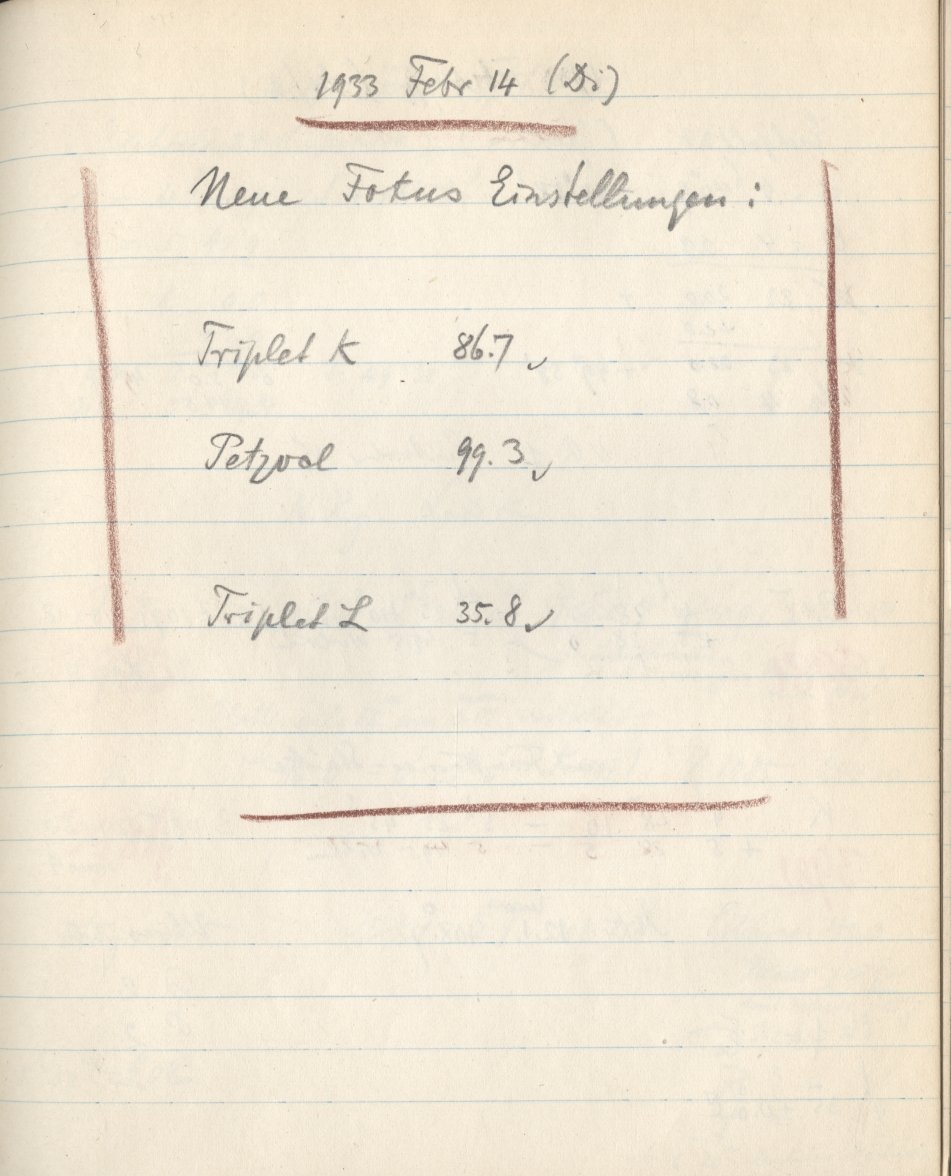 1933 Febr 14 (Di)
Neue Fokus Einstellungen:
Triplet K 86.7 ✓
Petzval 99.3 ✓
Triplet L 35.8 ✓